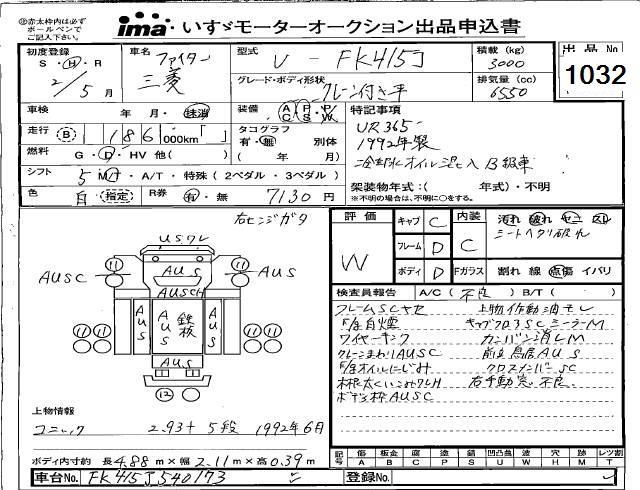 ㊟赤太枠内は必ず
ボールペンで
ご記入下さい。
ima いすゞモーターオークション出品申込書
初度登録 S・H・R 2/5月
車名 ファイター 三菱
型式 U-FK415J
積載(kg) 3000
出品No 1032
グレード・ボディ形状 クレーン付き平
排気量(cc) 6550
車検 年 月・抹消
装備 A/C P/S P/W
特記事項
走行 B 186,000km
タコグラフ 有・無 別体 ( 年 月)
UR365
1992年製
冷却水オイル混入 B級車
燃料 G・D・HV 他( )
シフト 5 MT・A/T・特殊(2ペダル・3ペダル)
架装物年式:( 年式)・不明
※不明の場合は、不明に○をする。
色 白 指定
R券 有・無 7130円
右ヒンジガタ
USワレ
AUS
AUSC
AUS
AUSCH
AUS
AUS
鉄板
AUS
AUS
11 11 11 11 11 11
12
評価 W
キャブ C
フレーム D
ボディ D
内装 C
Fガラス
汚れ 破れ ヤニ スレ
シートヘタリ破れ
割れ 線 点傷 イバリ
検査員報告 A/C(不良) B/T( )
フレームSCサビ 上物作動油モレ
E/G白煙 キャブフロアSC ミラーM
ワイヤーキンク カンバン消しM
クレーンまわりAUSC 前立鳥居AUS
E/Gオイルにじみ クロスメンバーSC
ボデー枠AUSC
上物情報
ユニック 2.93t 5段 1992年6月
ボディ内寸約 長4.88m×幅2.11m×高0.39m
記号 傷A 板金B 腐C 塗P 錆S 凹凸凹U 波W 穴H 跡M 欠Y レツ割T
車台No. FK415J540173
登録No.